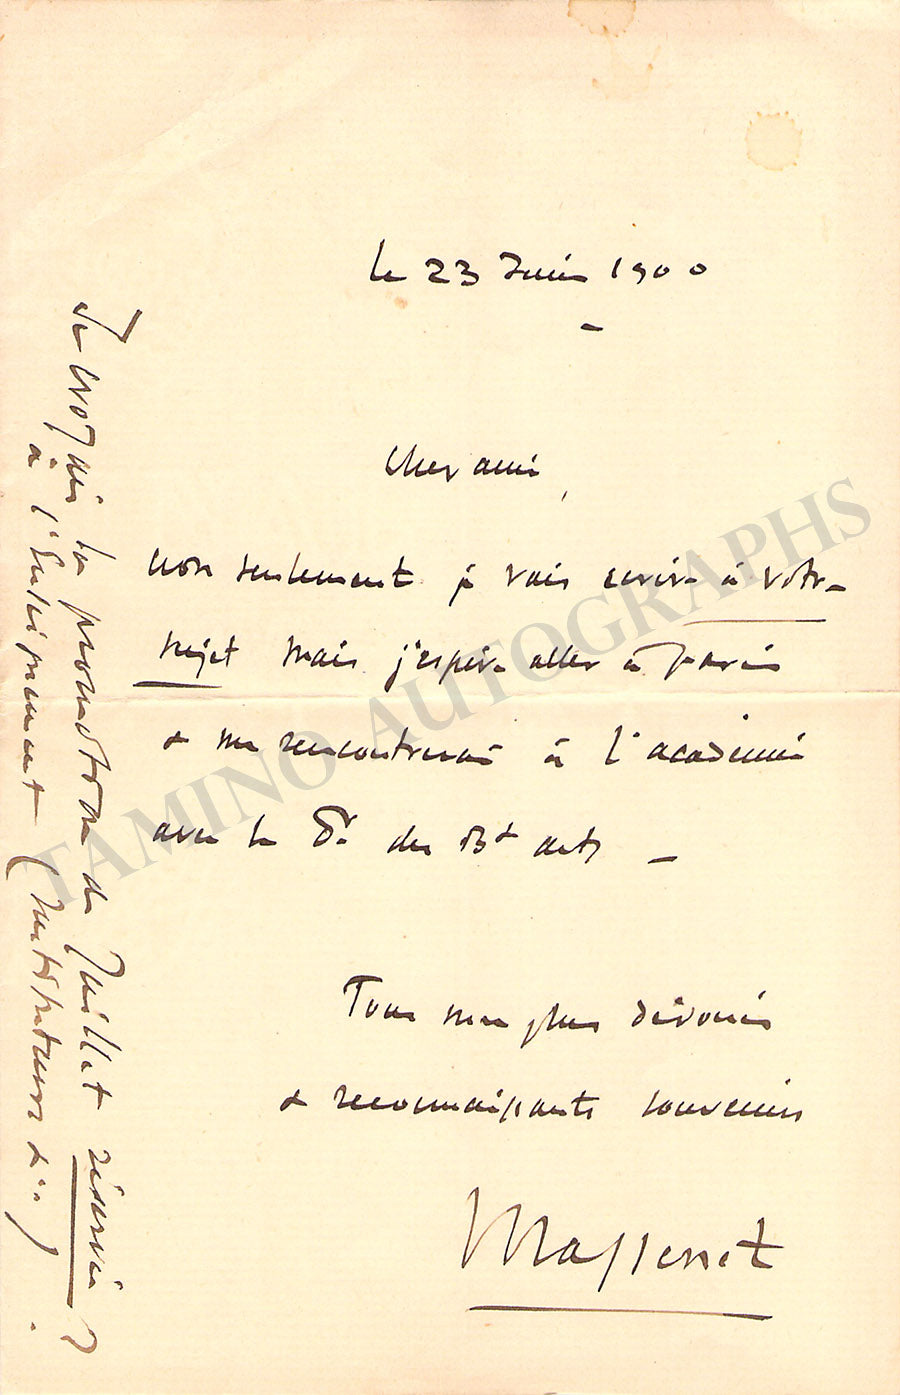 le 23 Juin 1900
Cher ami,
non seulement je vais ecrire à votre
sujet mais j'espère aller à Paris
& me rencontrerai à l'académie
avec le Dr des Bx arts —
Tous mes plus dévoués
& reconnaissants souvenirs
Massenet
Je croyais la promotion de Juillet réservée
à l'Enseignement (instituteurs &..) ?
TAMINO AUTOGRAPHS